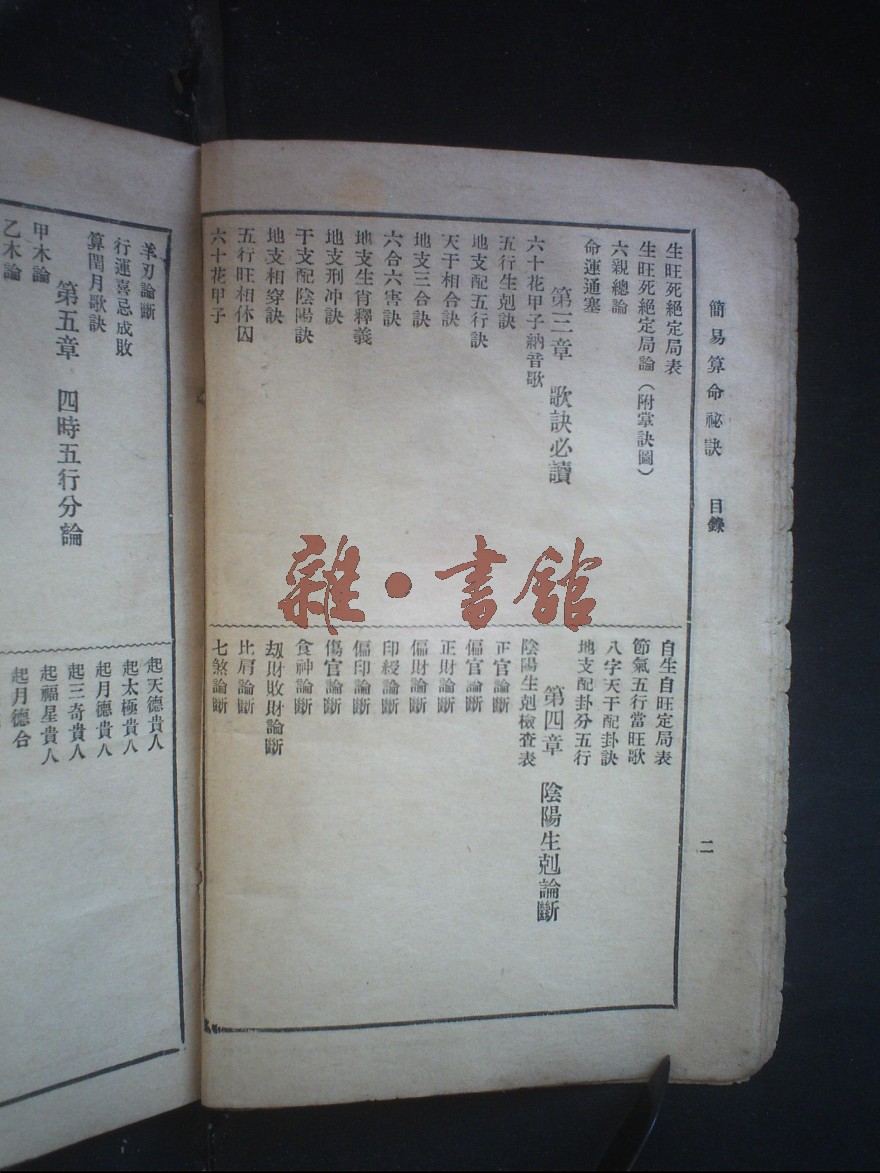 簡易算命祕訣 目錄
二
生旺死絕定局表
生旺死絕定局論（附掌訣圖）
六親總論
命運通塞
第三章 歌訣必讀
六十花甲子納音歌
五行生剋訣
地支配五行訣
天干相合訣
地支三合訣
六合六害訣
地支生肖釋義
地支刑冲訣
干支配陰陽訣
地支相穿訣
五行旺相休囚
六十花甲子
自生自旺定局表
節氣五行當旺歌
八字天干配卦訣
地支配卦分五行
第四章 陰陽生剋論斷
陰陽生剋檢查表
正官論斷
偏官論斷
正財論斷
偏財論斷
印綬論斷
偏印論斷
傷官論斷
食神論斷
刼財敗財論斷
比肩論斷
七煞論斷
羊刃論斷
行運喜忌成敗
算閏月歌訣
第五章 四時五行分論
甲木論
乙木論
起天德貴人
起太極貴人
起月德貴人
起三奇貴人
起福星貴人
起月德合
雜·書館